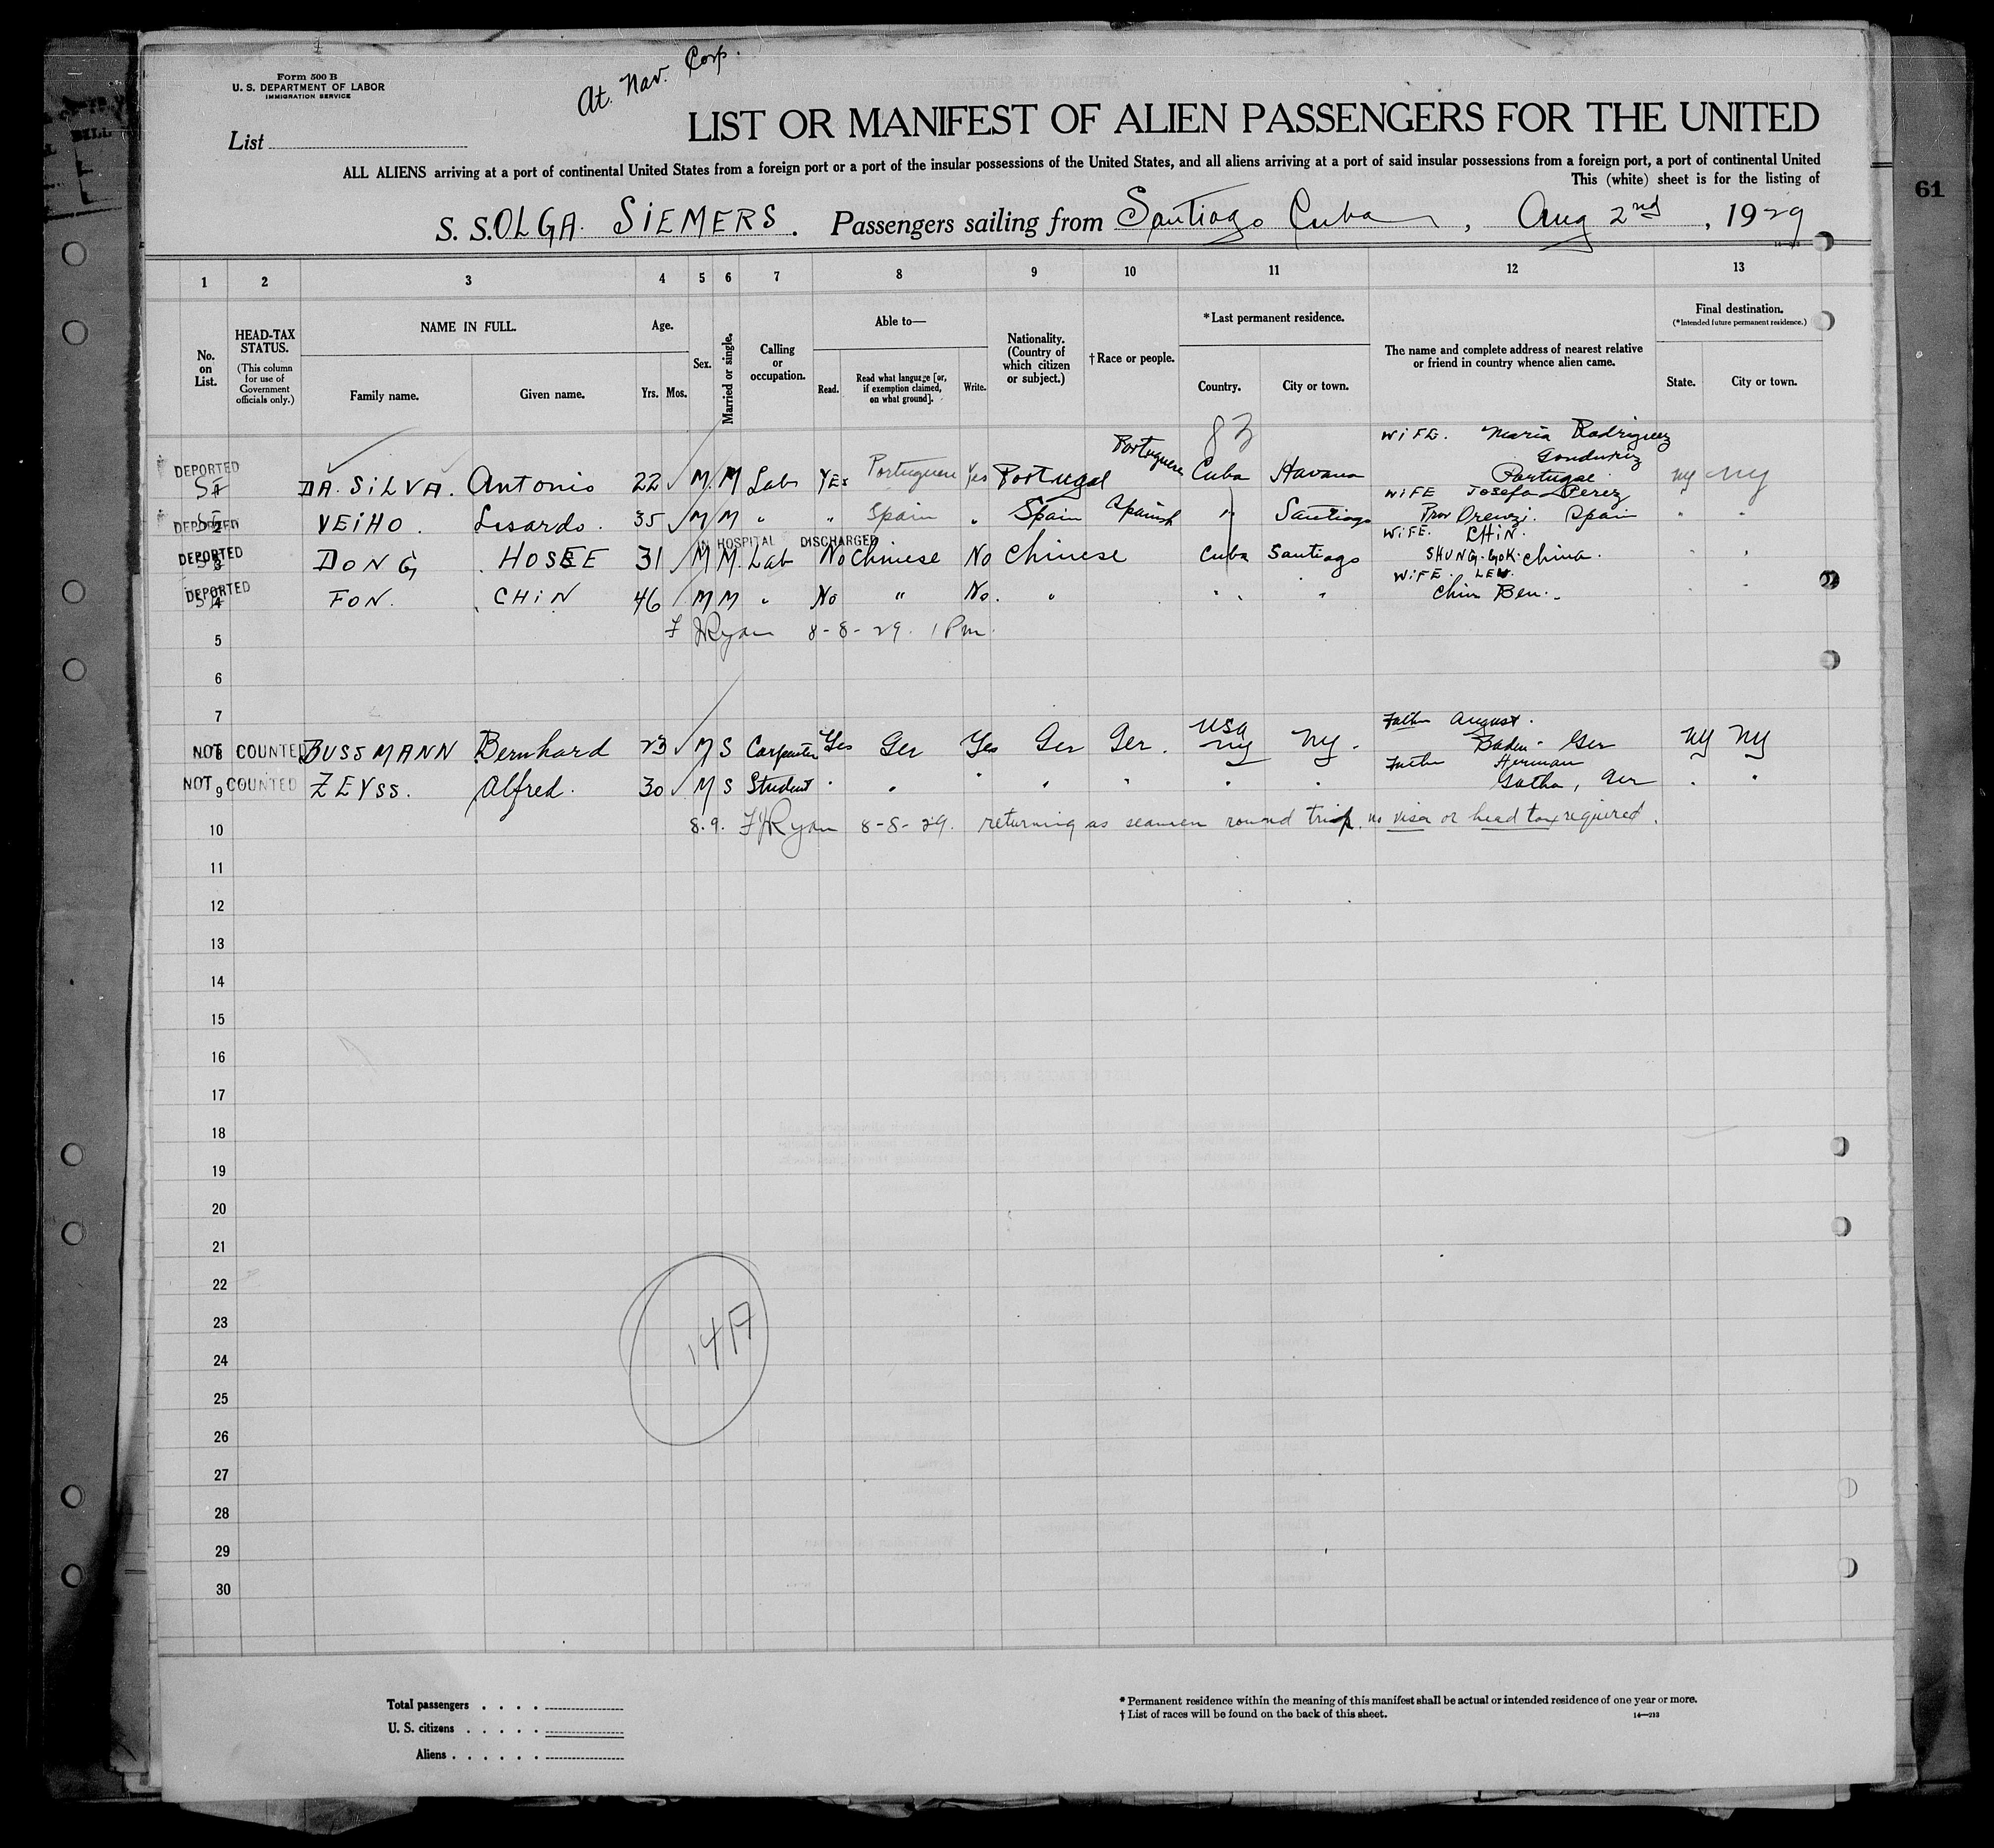 Form 500 B
U. S. DEPARTMENT OF LABOR
IMMIGRATION SERVICE
At. Nav. Corp.
List
LIST OR MANIFEST OF ALIEN PASSENGERS FOR THE UNITED
ALL ALIENS arriving at a port of continental United States from a foreign port or a port of the insular possessions of the United States, and all aliens arriving at a port of said insular possessions from a foreign port, a port of continental United
This (white) sheet is for the listing of
61
S. S. OLGA. SIEMERS. Passengers sailing from Santiago Cuba, Aug 2nd, 1929
1 2 3 4 5 6 7 8 9 10 11 12 13
No. on List.
HEAD-TAX STATUS.
(This column for use of Government officials only.)
NAME IN FULL.
Family name. Given name.
Age.
Yrs. Mos.
Sex.
Married or single.
Calling or occupation.
Able to—
Read. Read what language [or, if exemption claimed, on what ground]. Write.
Nationality. (Country of which citizen or subject.)
† Race or people.
* Last permanent residence.
Country. City or town.
The name and complete address of nearest relative or friend in country whence alien came.
Final destination.
(* Intended future permanent residence.)
State. City or town.
83
WIFE. Maria Rodriguez
DEPORTED DA. SILVA. Antonio 22 M. M Lab YES Portuguese Yes Portugal Portuguese Cuba Havana Portugal NY NY
WIFE Josefa Perez
DEPORTED 2 VEIHO. Lisardo. 35 M M " " Spain " Spain Spanish " Santiago Prov Spain " "
IN HOSPITAL DISCHARGED
WIFE. CHIN.
DEPORTED 3 DONG HOSEE 31 M M. Lab No Chinese No Chinese Cuba Santiago SHUNG. GOK. China.
WIFE. LEW.
DEPORTED 4 FON. CHIN 46 M M " No " No. " " " Chin Ben.
5 F J Ryan 8-8-29. 1 Pm.
6
7
Father August.
NOT COUNTED 8 BUSSMANN Bernhard 23 M S Carpenter Yes Ger Yes Ger Ger. USA NY NY. Baden - Ger NY NY
Father Herman
NOT COUNTED 9 ZEYSS. Alfred. 30 M S Student " " " " " " " Gotha, Ger " "
10 8.9. F J Ryan 8-8-29. returning as seamen round trip. no visa or head tax required.
11
12
13
14
15
16
17
18
19
20
21
22
23
24
25
26
27
28
29
30
14A
Total passengers
U. S. citizens
Aliens
* Permanent residence within the meaning of this manifest shall be actual or intended residence of one year or more.
† List of races will be found on the back of this sheet.
14—213